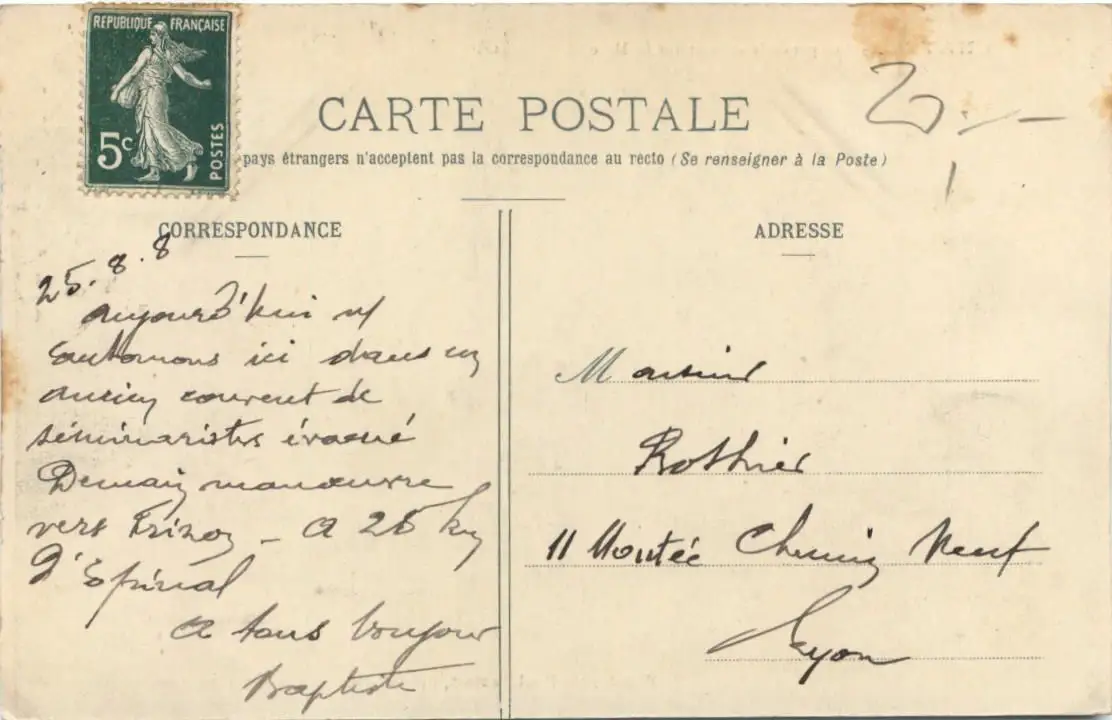 REPUBLIQUE FRANÇAISE
5c
POSTES
CARTE POSTALE
pays étrangers n'acceptent pas la correspondance au recto (Se renseigner à la Poste)
CORRESPONDANCE
25.8.8
aujourd'hui
cantonnons ici dans un
ancien couvent de
séminaristes évacué
Demain manœuvre
vers - a 25 km
d'Epinal
a tous bonjour
Baptiste
ADRESSE
Monsieur
Rothier
11 Montée Chemin Neuf
Lyon